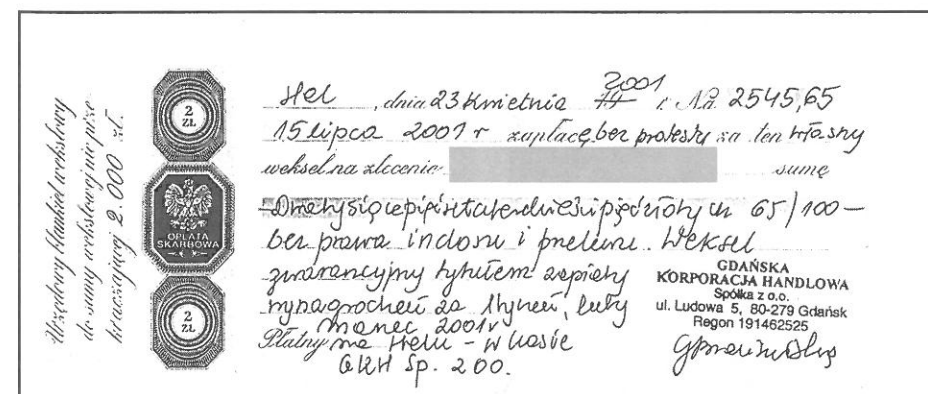 Urzędowy blankiet wekslowy
do sumy wekslowej nie prze-
kraczającej 2.000 zł.
2
ZŁ
OPŁATA
SKARBOWA
2
ZŁ
Hel, dnia 23 kwietnia 2001 r. Na 2545,65
15 lipca 2001 r zapłacę bez protestu za ten własny
weksel na zlecenie sumę
Dwatysiącepięćsetczterdzieścipięćzłotych 65/100 —
bez prawa indosu i przelewu. Weksel
gwarancyjny tytułem zapłaty
wynagrodzeń za styczeń, luty
marzec 2001r
Płatny na Helu - w kasie
GKH Sp. z o.o.
GDAŃSKA
KORPORACJA HANDLOWA
Spółka z o.o.
ul. Ludowa 5, 80-279 Gdańsk
Regon 191462525